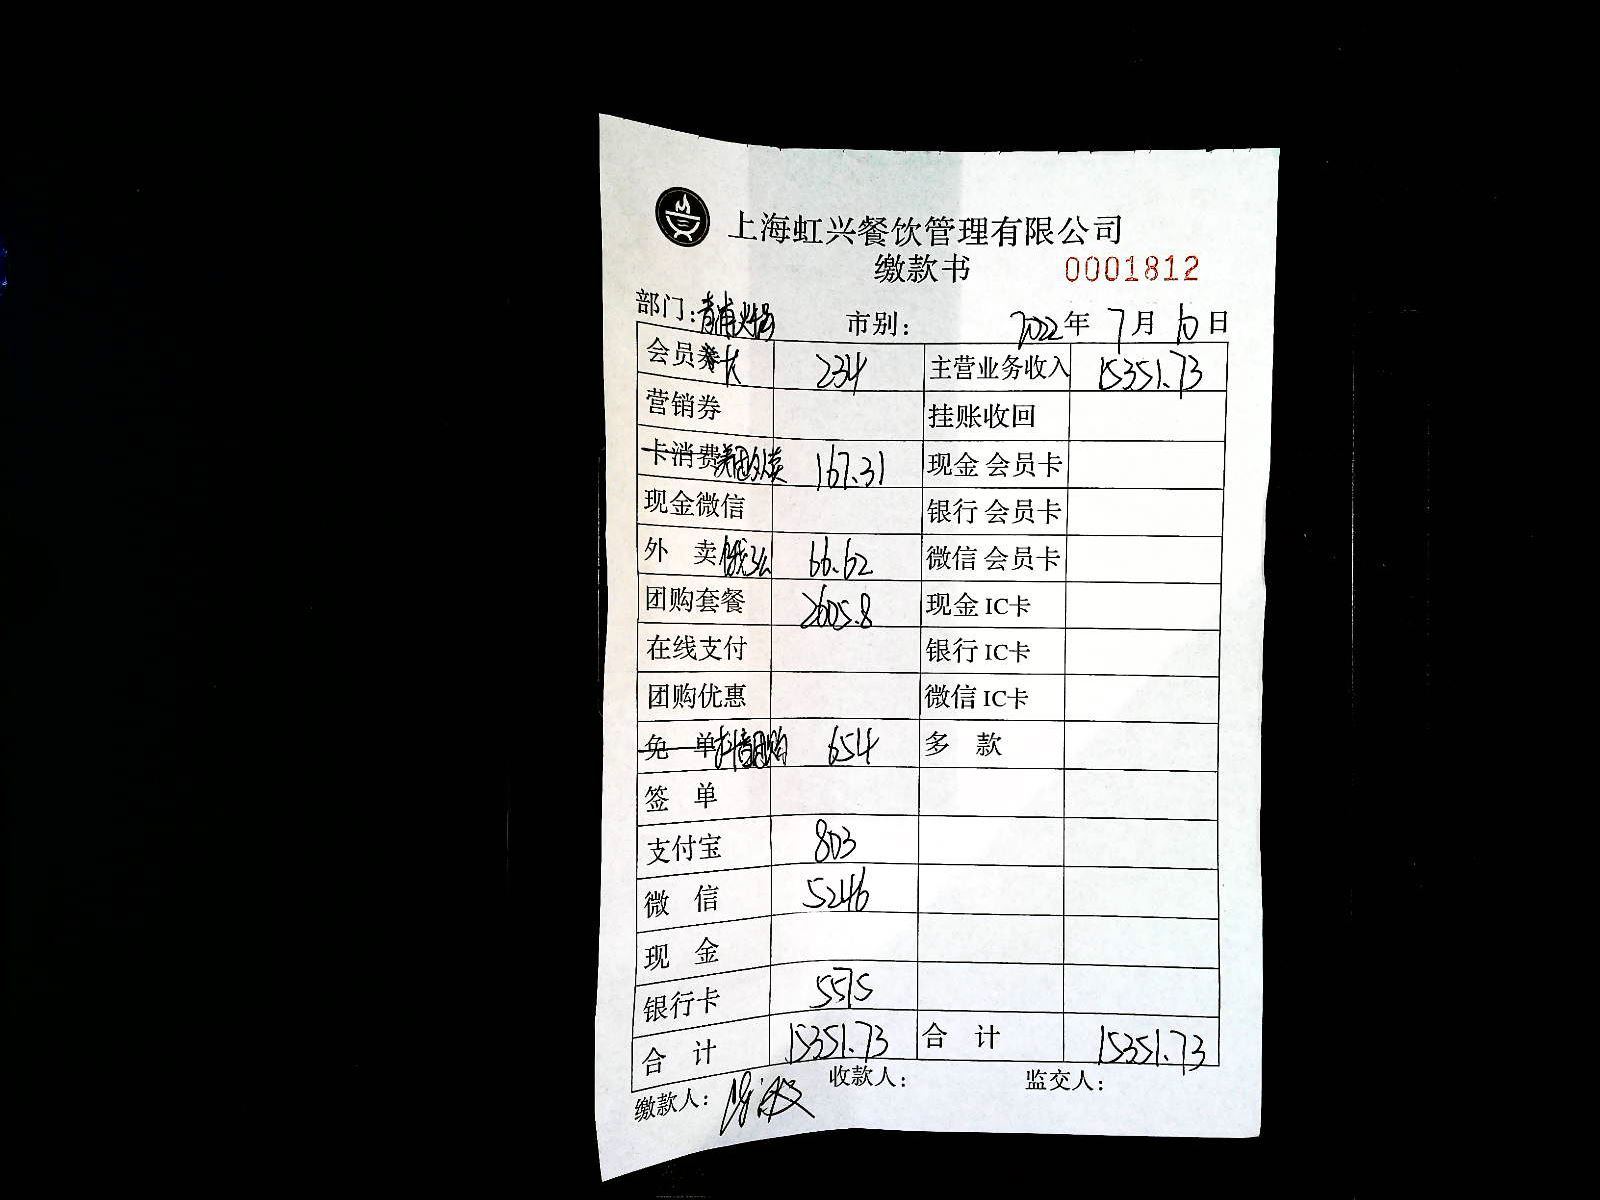 上海虹兴餐饮管理有限公司
缴款书 0001812
部门: 青浦 市别: 2022年 7月 10日
会员卡 234 主营业务收入 15351.73
营销券 挂账收回
卡消费美团外卖 167.31 现金 会员卡
现金微信 银行 会员卡
外 卖 饿了么 66.62 微信 会员卡
团购套餐 2605.8 现金 IC卡
在线支付 银行 IC卡
团购优惠 微信 IC卡
免 单 抖音团购 654 多 款
签 单
支付宝 803
微 信 5246
现 金
银行卡 5575
合 计 15351.73 合 计 15351.73
缴款人: 收款人: 监交人: